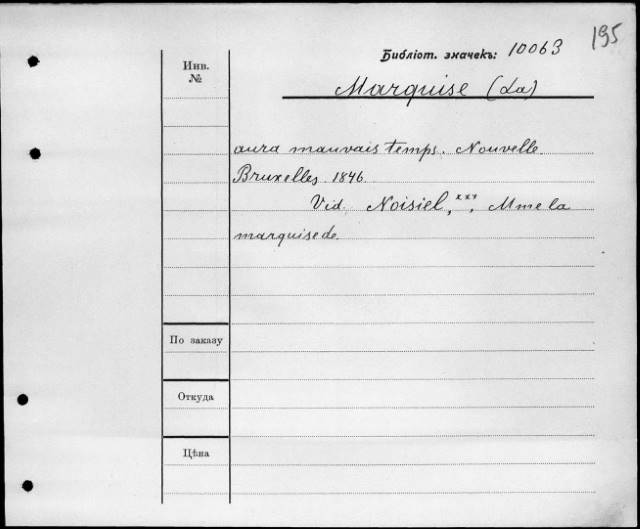 195
Библіот. значекъ: 10063
Инв.
№
Marquise (La)
aura mauvais temps. Nouvelle.
Bruxelles. 1846.
Vid. Noisiel, xxx, Mme la
marquise de.
По заказу
Откуда
Цѣна